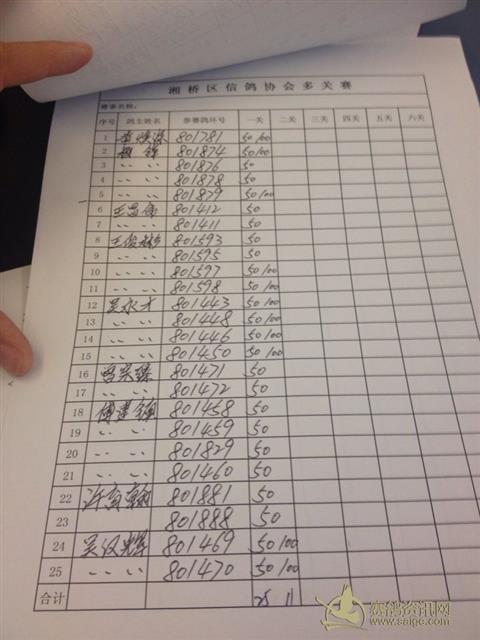 湘桥区信鸽协会多关赛
赛事名称:
序号 鸽主姓名 参赛鸽环号 一关 二关 三关 四关 五关 六关
1 801781 50 100
2 801874 50 100
3 〃 〃 801876 50
4 〃 〃 801878 50
5 〃 〃 801879 50 100
6 801412 50
7 〃 〃 801411 50
8 801593 50
9 〃 〃 801595 50
10 〃 〃 801597 50 100
11 〃 〃 801598 50 100
12 吴永才 801443 50 100
13 〃 〃 801448 50 100
14 〃 〃 801446 50 100
15 〃 〃 801450 50 100
16 801471 50
17 〃 〃 801472 50
18 801458 50
19 〃 〃 801459 50
20 〃 〃 801829 50
21 〃 〃 801460 50
22 801881 50
23 801888 50
24 吴汉辉 801469 50 100
25 〃 〃 801470 50 100
合计 25 11
赛鸽资讯网
www.saige.com